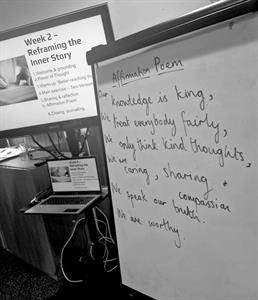 Week 2 –
Reframing the
Inner Story
1. Welcome & grounding
2. Power of Thought
3. Warm-up: 'Better
4. Main exercise –
5. Sharing & reflection
6. Affirmation Poem
Closing journaling
Week 2 –
Reframing the
Inner Story
Affirmation Poem
Our Knowledge is King,
We treat everybody fairly,
We only think kind thoughts,
We are caring, sharing +
compassion
We speak our truth.
We are worthy.